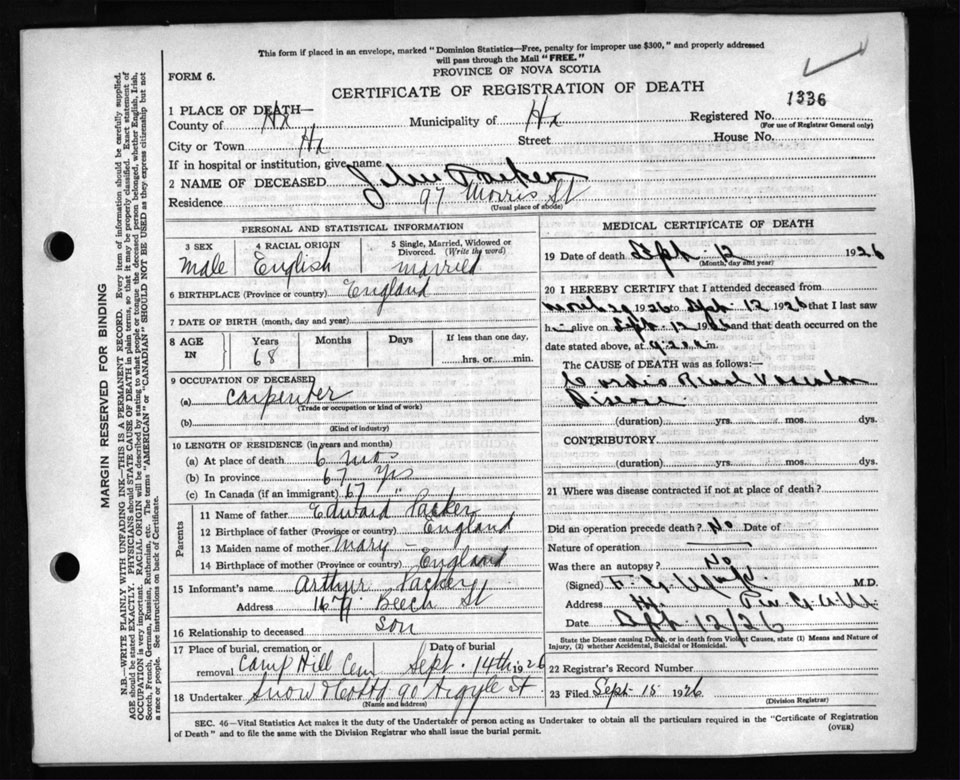 This form if placed in an envelope, marked "Dominion Statistics—Free, penalty for improper use $300," and properly addressed
will pass through the Mail "FREE."
PROVINCE OF NOVA SCOTIA
FORM 6.
CERTIFICATE OF REGISTRATION OF DEATH
1336
1 PLACE OF DEATH—
County of Hx Municipality of Hx Registered No.
(For use of Registrar General only)
City or Town Hx Street House No.
If in hospital or institution, give name
2 NAME OF DECEASED John Packer
Residence 97 Morris St
(Usual place of abode)
PERSONAL AND STATISTICAL INFORMATION
3 SEX 4 RACIAL ORIGIN 5 Single, Married, Widowed or Divorced. (Write the word)
Male English married
6 BIRTHPLACE (Province or country) England
7 DATE OF BIRTH (month, day and year)
8 AGE IN Years Months Days If less than one day,
68 hrs. or min.
9 OCCUPATION OF DECEASED
(a) Carpenter
(Trade or occupation or kind of work)
(b)
(Kind of industry)
10 LENGTH OF RESIDENCE (in years and months)
(a) At place of death 6 mos
(b) In province 67 yrs
(c) In Canada (if an immigrant) 67 "
Parents
11 Name of father Edward Packer
12 Birthplace of father (Province or country) England
13 Maiden name of mother Mary —
14 Birthplace of mother (Province or country) England
15 Informant's name Arthur Packer
Address Beech St
16 Relationship to deceased son
17 Place of burial, cremation or removal Date of burial
Camp Hill Cem Sept. 14th 1926
18 Undertaker Snow & Co Ltd 90 Argyle St
(Name and address)
MEDICAL CERTIFICATE OF DEATH
19 Date of death Sept. 12 1926
(Month, day and year)
20 I HEREBY CERTIFY that I attended deceased from
1926 to Sept. 12 1926 that I last saw
h alive on Sept. 12 1926 and that death occurred on the
date stated above, at m.
The CAUSE OF DEATH was as follows:—
Cardio Renal Vascular
Disease
(duration) yrs. mos. dys.
CONTRIBUTORY
(duration) yrs. mos. dys.
21 Where was disease contracted if not at place of death?
Did an operation precede death? No Date of
Nature of operation
Was there an autopsy? No
(Signed) M.D.
Address Hx
Date Sept 12/26
State the Disease causing Death, or in death from Violent Causes, state (1) Means and Nature of
Injury, (2) whether Accidental, Suicidal or Homicidal.
22 Registrar's Record Number
23 Filed Sept 15 1926
(Division Registrar)
SEC. 46—Vital Statistics Act makes it the duty of the Undertaker or person acting as Undertaker to obtain all the particulars required in the "Certificate of Registration
of Death" and to file the same with the Division Registrar who shall issue the burial permit.
(OVER)
MARGIN RESERVED FOR BINDING
N.B.—WRITE PLAINLY WITH UNFADING INK—THIS IS A PERMANENT RECORD. Every item of information should be carefully supplied.
AGE should be stated EXACTLY. PHYSICIANS should STATE CAUSE OF DEATH in plain terms, so that it may be properly classified. Exact statement of
OCCUPATION is very important. RACIAL ORIGIN will be described by stating to what people or tongue the deceased person belonged, whether English, Irish,
Scotch, French, German, Russian, Ruthenian, etc. The terms "AMERICAN" or "CANADIAN" SHOULD NOT BE USED as they express citizenship but not
a race or people. See instructions on back of Certificate.